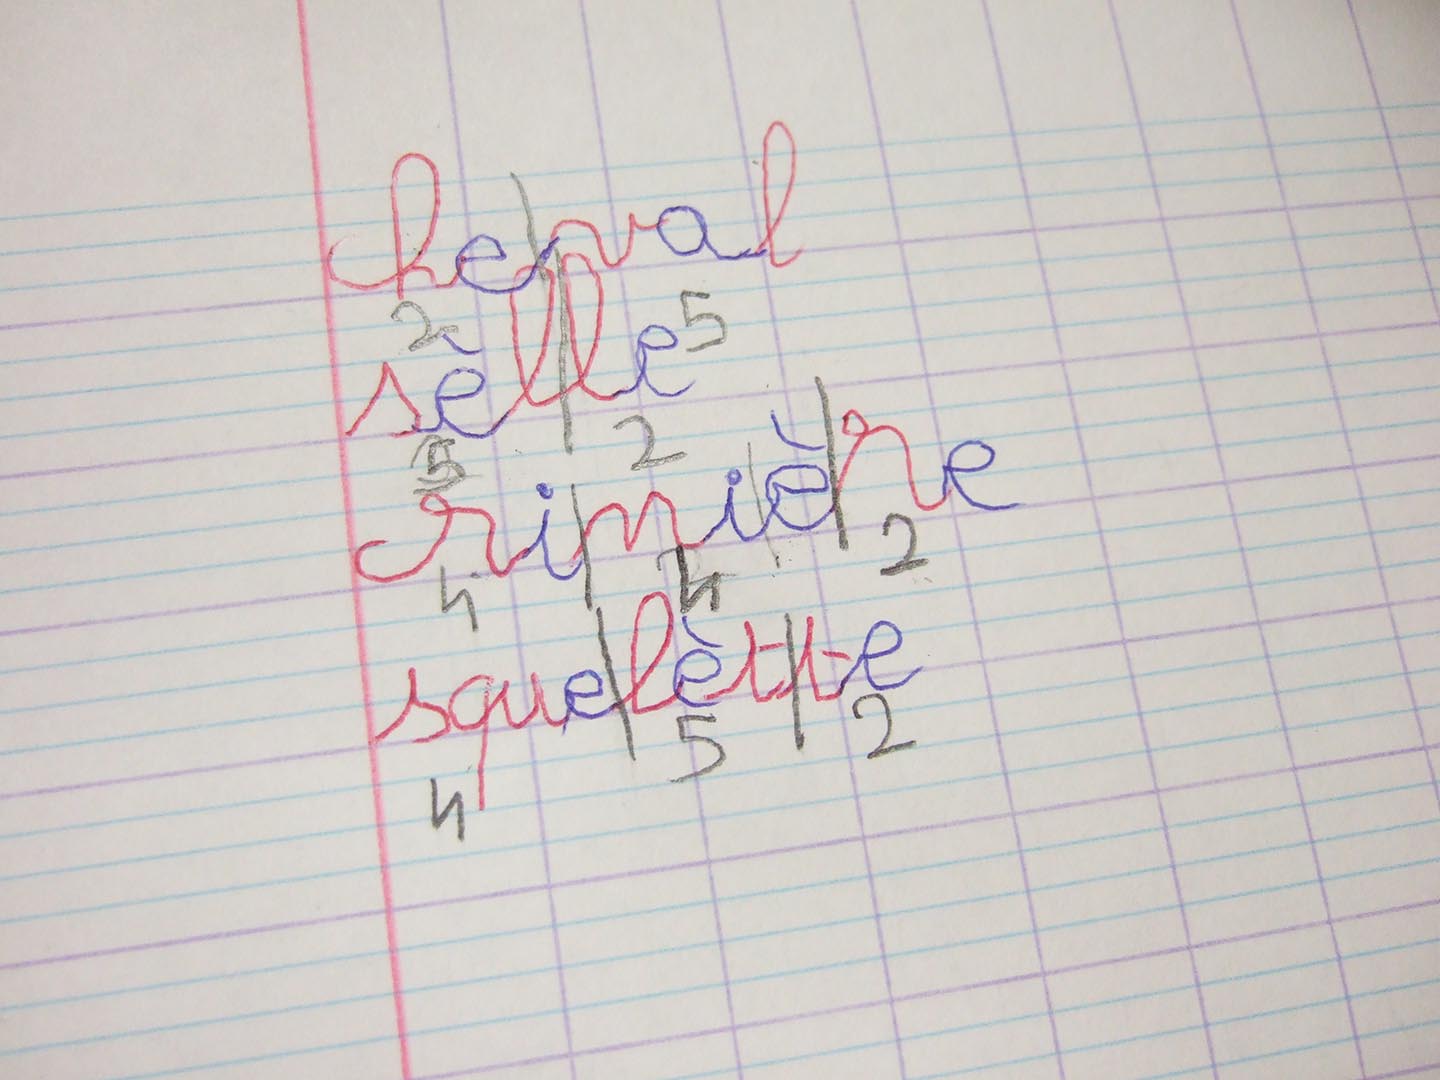 che|val
2 5
sèl|le
5 2
cri|niè|re
4 4 2
sque|lèt|te
4 5 2